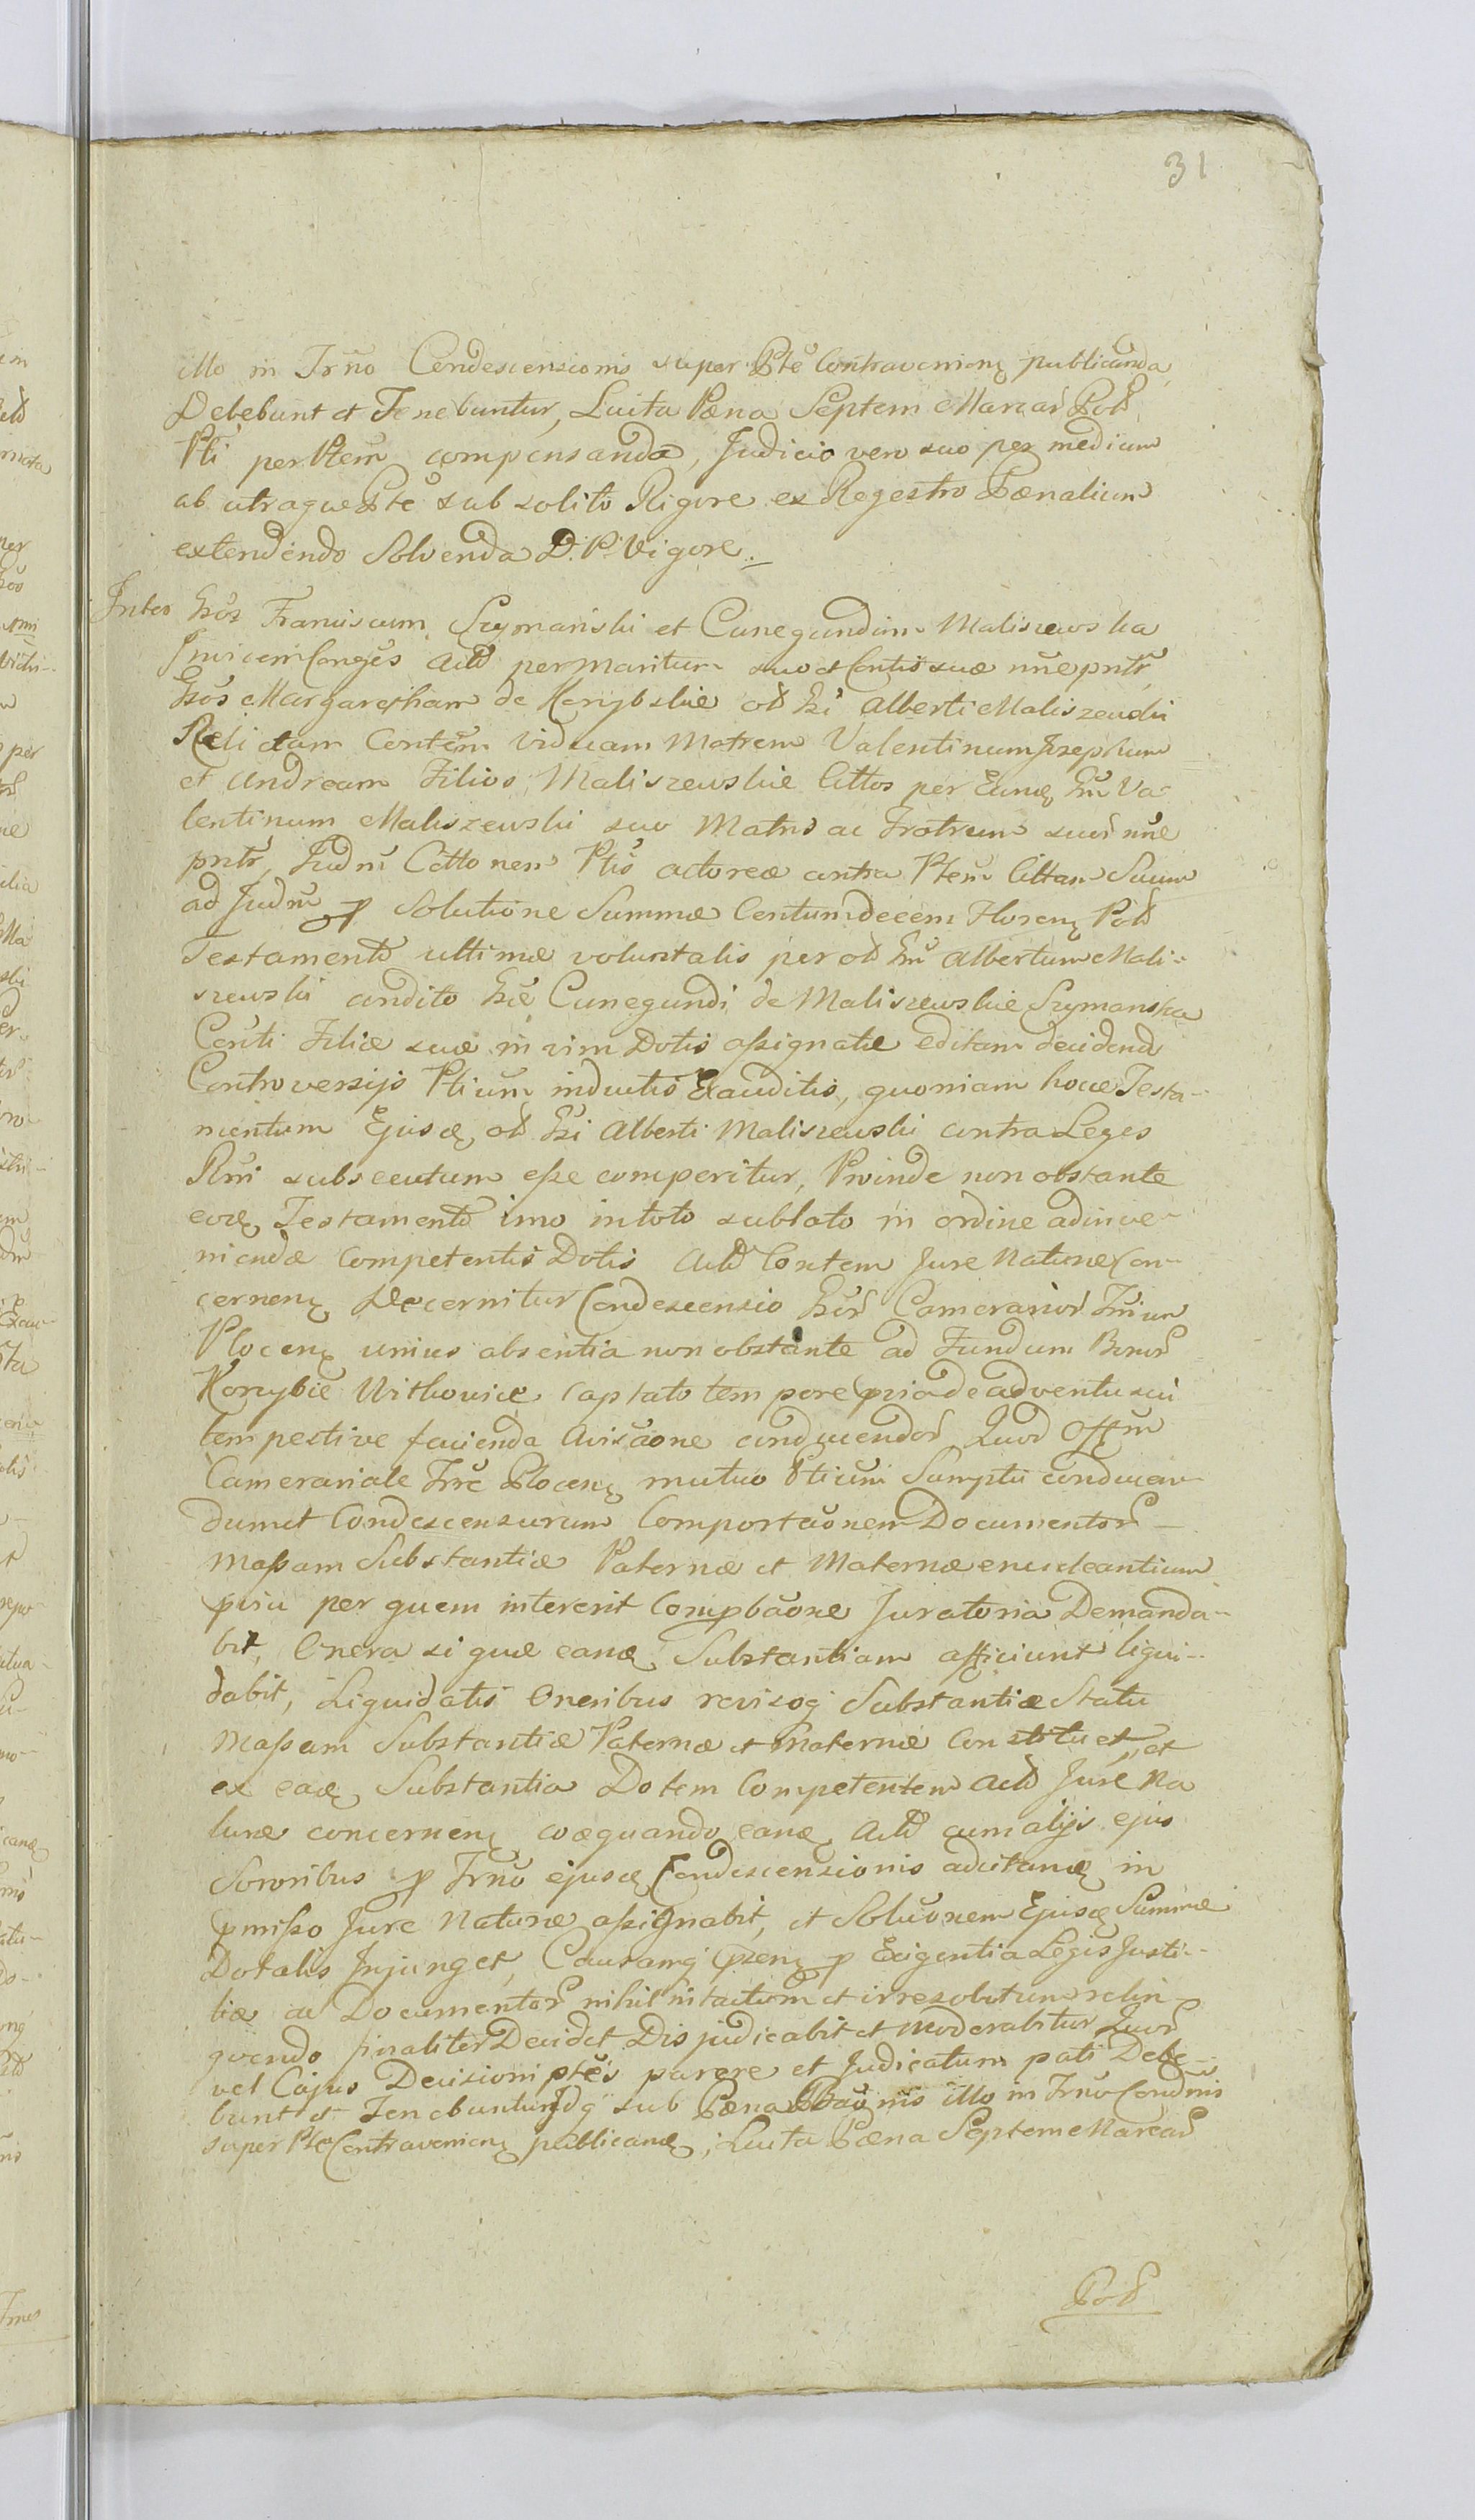 31
illo in Trño Condescensionis super Pte Contravenienȝ publicanda,
Debebunt et Tenebuntur, Luita Pæna Septem Marcar Pol
Pti per Ptem compensanda, Judicio vero suo per medium
ab utraque Pte sub solito Rigore ex Regestro Pænalium
extendendo Solvenda D: P: Vigore.
Inter Gsos Franciscum Szymański et Cunegundim Maliszewska
Invicem Conges Act permaritum suo et Contis suæ nunc pntr
Gsos Margaretham de Korzybskie ol Gsi Alberti Maliszewski
Relictam Contem Viduam Matrem Valentinum Josephum
et Andream Filios Maliszewskie Cittos per Eunȩ Gsm Va-
lentinum Maliszewski suo Matris ac Fratrum suor nunc
pntr, Judm Cittonem Ptis actoreæ contra Ptem Cittam Suum
ad Judm p Solutione Summæ Centumdecem Florenȝ Pol
Testamento ultimæ voluntatis per ol Gsm Albertum Mali-
szewski condito Gsæ Cunegundi de Maliszewskie Szymanska
Conti Filiæ suæ in vim Dotis assignatæ editam decidend
Controversijs Ptium inductis Exauditis, quoniam hocce Testa-
mentum Ejusȩ ol Gsi Alberti Maliszewski contra Leges
Rni subsecutum esse comperitur, Proinde non obstante
eoȩ Testamento imo in toto sublato in ordine adinve-
niendæ Competentis Dotis Act Contem Jure Naturæ Con-
cernenȝ Decernitur Condescensio Gsor Camerarior Trium
Plocenȝ unius absentia non obstante ad Fundum Bonor
Korzybie Witkowice captato tempore priade adventu sui
tempestive facienda Avisaone conducendor Quod Offm
Camerariale Trre Plocenȝ mutuo Ptium Sumptu conducen-
dum et Condescensurum Comportaonem Documentor
Massam Substantiæ Paternæ et Maternæ enucleantium
prsu per quem intererit Compbaone Juratoria Demanda-
bit, Onera si quæ eanȩ Substantiam afficiunt liqui-
dabit, Liquidatis Oneribus revisoq Substantiæ Statu
Massam Substantiæ Paternæ et Maternæ Constituet, et
ex eaȩ Substantia Dotem Competentem Act Jure Na
turæ concernenȝ coæquando eanȩ Act cum alijs ejus
Sororibus p Trno ejusȩ Condescensionis adcitanȩ in
pmisso Jure Naturæ assignabit, et Soluonem Ejusȩ Summæ
Dotalis Injunget, Causamq psenȝ p Exigentia Legis Justi-
tiæ ac Documentor nihil intactum et irresolutum relin-
quendo finaliter Decidet Disjudicabit et Moderabitur Quor
vel Cujus Decisioni ptes parere et Judicatum pati Debe-
bunt et Tenebuntur Idq sub Pæna Bannis illo in Trno Condnis
super Pte Contravenienȝ publicanȩ; Luita Pæna Septem Marcar
Pol